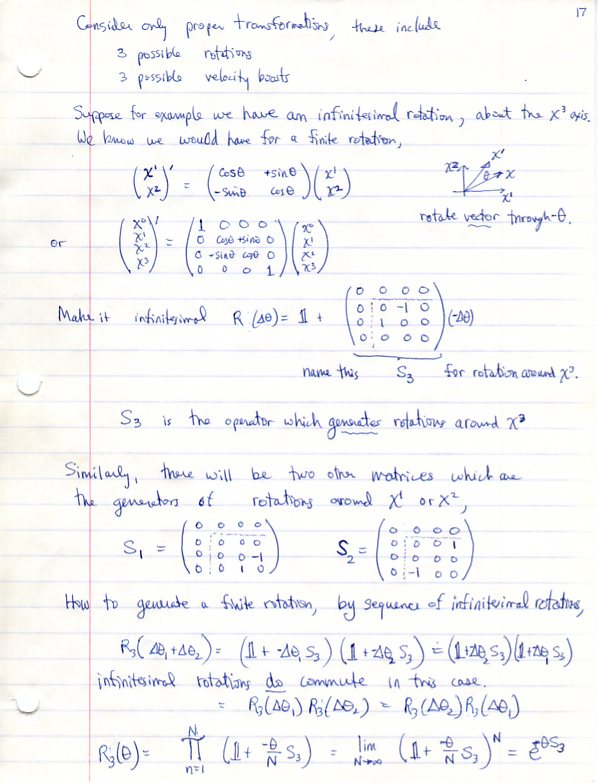 17
Consider only proper transformations, these include
3 possible rotations
3 possible velocity boosts
Suppose for example we have an infinitesimal rotation, about the x³ axis.
We know we would have for a finite rotation,
(x¹ x²)' = (cosθ +sinθ; -sinθ cosθ)(x¹ x²)
x² x' θ x x¹
rotate vector through -θ.
or (x⁰ x¹ x² x³)' = (1 0 0 0; 0 cosθ +sinθ 0; 0 -sinθ cosθ 0; 0 0 0 1)(x⁰ x¹ x² x³)
Make it infinitesimal R(Δθ) = 𝟙 + (0 0 0 0; 0 0 -1 0; 0 1 0 0; 0 0 0 0)(-Δθ)
name this S₃ for rotation around x³.
S₃ is the operator which generates rotations around x³
Similarly, there will be two other matrices which are
the generators of rotations around x¹ or x²,
S₁ = (0 0 0 0; 0 0 0 0; 0 0 0 -1; 0 0 1 0) S₂ = (0 0 0 0; 0 0 0 1; 0 0 0 0; 0 -1 0 0)
How to generate a finite rotation, by sequence of infinitesimal rotations,
R₃(Δθ₁+Δθ₂) = (𝟙 + -Δθ₁ S₃)(𝟙 + -Δθ₂ S₃) = (𝟙-Δθ₂ S₃)(𝟙-Δθ₁ S₃)
infinitesimal rotations do commute in this case.
= R₃(Δθ₁) R₃(Δθ₂) = R₃(Δθ₂) R₃(Δθ₁)
R₃(θ) = ∏ₙ₌₁ᴺ (𝟙 + -θ/N S₃) = lim N→∞ (𝟙 + -θ/N S₃)ᴺ = e^-θS₃